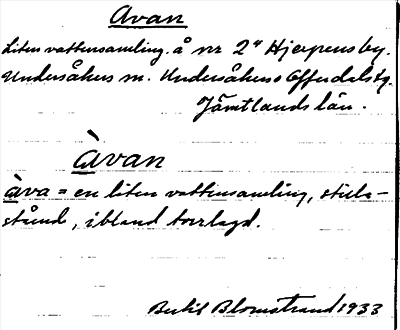 Avan
Liten vattensamling å nr 2" Hjerpens by.
Undersåkers sn. Undersåkers o Offerdals tg.
Jämtlands län.
Àvan
àva = en liten vattensamling, stilla-
stående, ibland torrlagd.
Bertil Blomstrand 1933